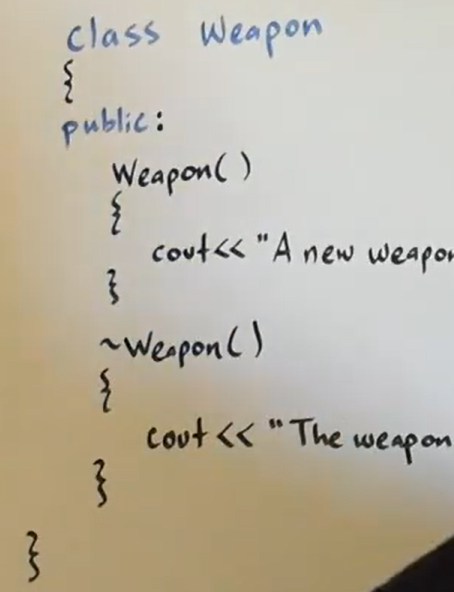 class Weapon
{
public:
Weapon()
{
cout<< "A new weapon
}
~Weapon()
{
cout << "The weapon
}
}